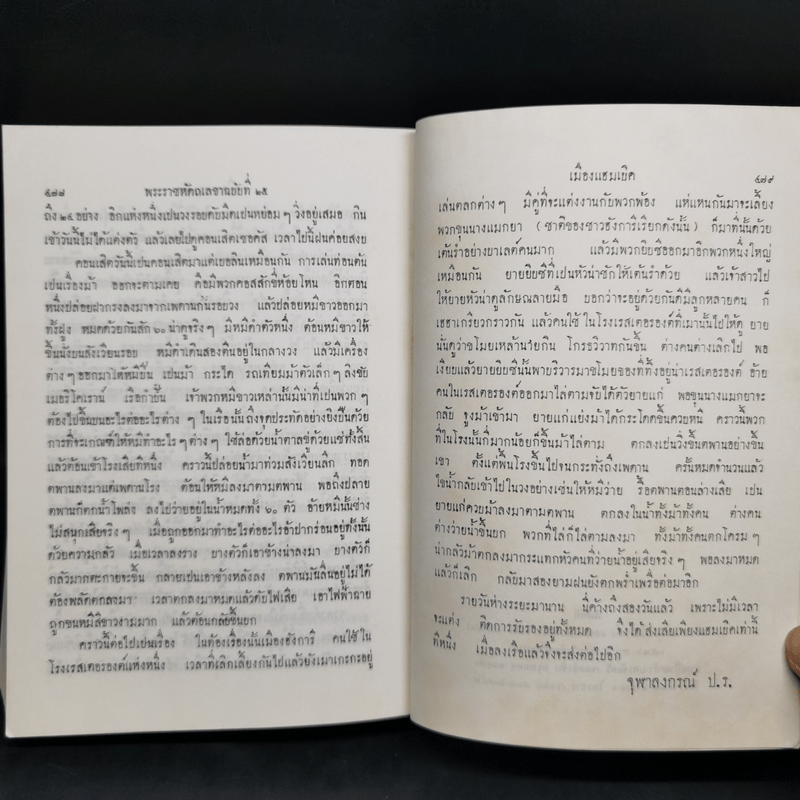 ๔๗๘ พระราชหัตถเลขาฉบับที่ ๒๕
ถึง ๒๔ อย่าง อีกแห่งหนึ่งเป็นวงรอยดับมิดเป็นหย่อม ๆ วิ่งอยู่เสมอ กิน
เข้าวันนี้ไม่ได้แต่งตัว แล้วเลยไปดูคอนเสิตเซอคัส เวลาไปนี้ฝนค่อยสงบ
คอนเสิตวันนี้เป็นคอนเสิตมาแต่เยอลินเหมือนกัน การเล่นท่อนต้น
เป็นเรื่องม้า ออกจะตามเคย คือมีพวกคอสสักขี่ห้อยโหน อีกตอน
หนึ่งปล่อยฝากรงลงมาจากเพดานกั้นรอบวง แล้วปล่อยหมีขาวออกมา
ทั้งฝูง หมดด้วยกันสัก ๖๐ น่าดูจริง ๆ มีหมีดำตัวหนึ่ง ต้อนหมีขาวให้
ขึ้นนั่งบนสังเวียนรอบ หมีดำเดินสองตีนอยู่ในกลางวง แล้วมีเครื่อง
ต่าง ๆ ออกมาให้หมีขึ้น เป็นม้า กระได รถเทียมม้าตัวเล็ก ๆ ลิงชัย
เมอริโคเรานี่ เรือกำปั่น เจ้าพวกหมีขาวเหล่านั้นมีน่าที่เป็นพวก ๆ
ต้องไปขึ้นบนอะไรต่ออะไรต่าง ๆ ในเรือนั้นถึงจุดประทัดอย่างยิงปืนด้วย
การที่จะเกณฑ์ให้หมีทำอะไร ๆ ต่าง ๆ ใช้ล่อด้วยน้ำตาลขู่ด้วยแซ่ทั้งสิ้น
แล้วต้อนเข้าโรงเสียทีหนึ่ง คราวนี้ปล่อยน้ำมาท่วมสังเวียนลึก ทอด
ตพานลงมาแต่เพดานโรง ต้อนให้หมีลงมาตามตพาน พอถึงปลาย
ตพานก็ตกน้ำโพลง ลงไปว่ายอยู่ในน้ำหมดทั้ง ๖๐ ตัว อ้ายหมีนั้นช่าง
ไม่สนุกเสียจริง ๆ เมื่อถูกออกมาทำอะไรต่ออะไรอ้าปากร่อนอยู่ทั้งนั้น
ด้วยความกลัว เมื่อเวลาลงราง บางตัวก็เอาข้างน่าลงมา บางตัวก็
กลัวมากตะกายจะขึ้น กลายเป็นเอาข้างหลังลง ตพานมันลื่นอยู่ไม่ได้
ต้องพลัดตกลงมา เวลาตกลงมาหมดแล้วดับไฟเสีย เอาไฟฟ้าฉาย
ถูกขนหมีสีขาวงามมาก แล้วต้อนกลับขึ้นบก
คราวนี้ต่อไปเป็นเรื่อง ในท้องเรื่องนั้นเมืองฮังการี คนใช้ใน
โรงเรสเตอรองต์แห่งหนึ่ง เวลาที่เลิกเลี้ยงกันไปแล้วยังเมาเกรกระอยู่
เมืองแฮมเบิค ๔๗๙
เล่นตลกต่าง ๆ มีคู่ที่จะแต่งงานกับพวกพ้อง แห่แหนกันมาจะเลี้ยง
พวกขุนนางแมกยา ( ชาติของชาวฮังการีเรียกดังนั้น ) ก็มาที่นั้นด้วย
เต้นรำอย่างยาเลต์คนมาก แล้วมีพวกยิบซีออกมาอีกพวกหนึ่งใหญ่
เหมือนกัน ยายยิบซีที่เป็นหัวน่าซักให้เต้นรำด้วย แล้วเจ้าสาวไป
ให้ยายหัวน่าดูลักษณลายมือ บอกว่าจะอยู่ด้วยกันดีมีลูกหลายคน ก็
เฮฮาเกรียวกราวกัน แล้วคนใช้ในโรงเรสเตอรองต์ที่เมานั้นไปให้ดู ยาย
นั้นดูว่าขโมยเหล้านายกิน โกรธวิวาทกันขึ้น ต่างคนต่างเลิกไป พอ
เงียบแล้วยายยิบซีนั้นพาบริวารมาขโมยของที่ทิ้งอยู่น่าเรสเตอรองต์ อ้าย
คนในเรสเตอรองต์ออกมาไล่ตามจับได้ตัวยายแก่ พอขุนนางแมกยาจะ
กลับ จูงม้าเข้ามา ยายแก่แย่งม้าได้กระโดดขึ้นควบหนี คราวนี้พวก
ที่ในโรงนั้นก็มากน้อยก็ขึ้นม้าไล่ตาม ตกลงเป็นวิ่งขึ้นตพานอย่างขึ้น
เขา ตั้งแต่พื้นโรงขึ้นไปจนกระทั่งถึงเพดาน ครั้นหมดจำนวนแล้ว
ไขน้ำกลับเข้าไปในวงอย่างเช่นให้หมีว่าย รื้อตพานตอนล่างเสีย เป็น
ยายแก่ควบม้าลงมาตามตพาน ตกลงในน้ำทั้งม้าทั้งคน ต่างคน
ต่างว่ายน้ำขึ้นบก พวกที่ไล่ก็ไล่ตามลงมา ทั้งม้าทั้งคนตกโครม ๆ
น่ากลัวม้าตกลงมากระแทกหัวคนที่ว่ายน้ำอยู่เสียจริง ๆ พอลงมาหมด
แล้วก็เลิก กลับมาสองยามฝนยังตกพรำเพรื่อต่อมาอีก
รายวันห่างระยะมานาน นี่ค้างถึงสองวันแล้ว เพราะไม่มีเวลา
จะแต่ง ติดการรับรองอยู่ทั้งหมด จึ่งได้ส่งเสียเพียงแฮมเบิคเท่านี้
ทีหนึ่ง เมื่อลงเรือแล้วจึ่งจะส่งต่อไปอีก
จุฬาลงกรณ์ ป.ร.